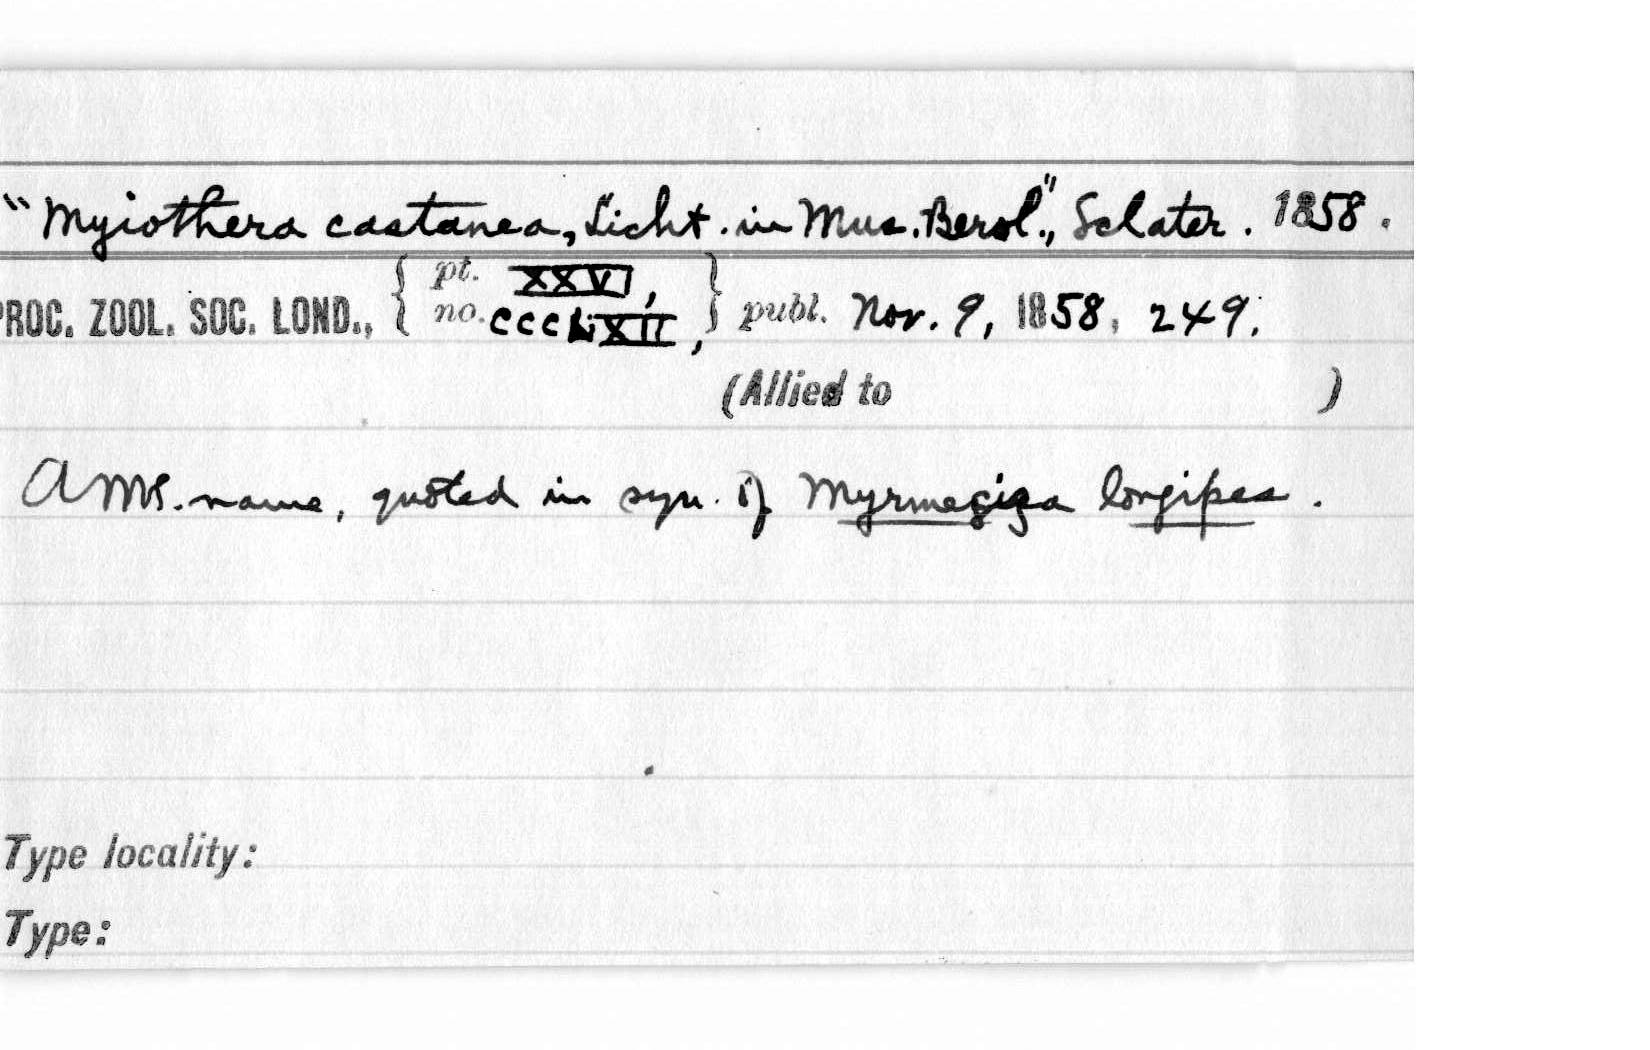 "Myiothera castanea, Licht. in Mus. Berol.", Sclater. 1858.
PROC. ZOOL. SOC. LOND., { pt. XXVI, no. CCCLXII, } publ. Nov. 9, 1858, 249.
(Allied to )
A MS. name, quoted in syn. of Myrmeciza longipes.
Type locality:
Type: